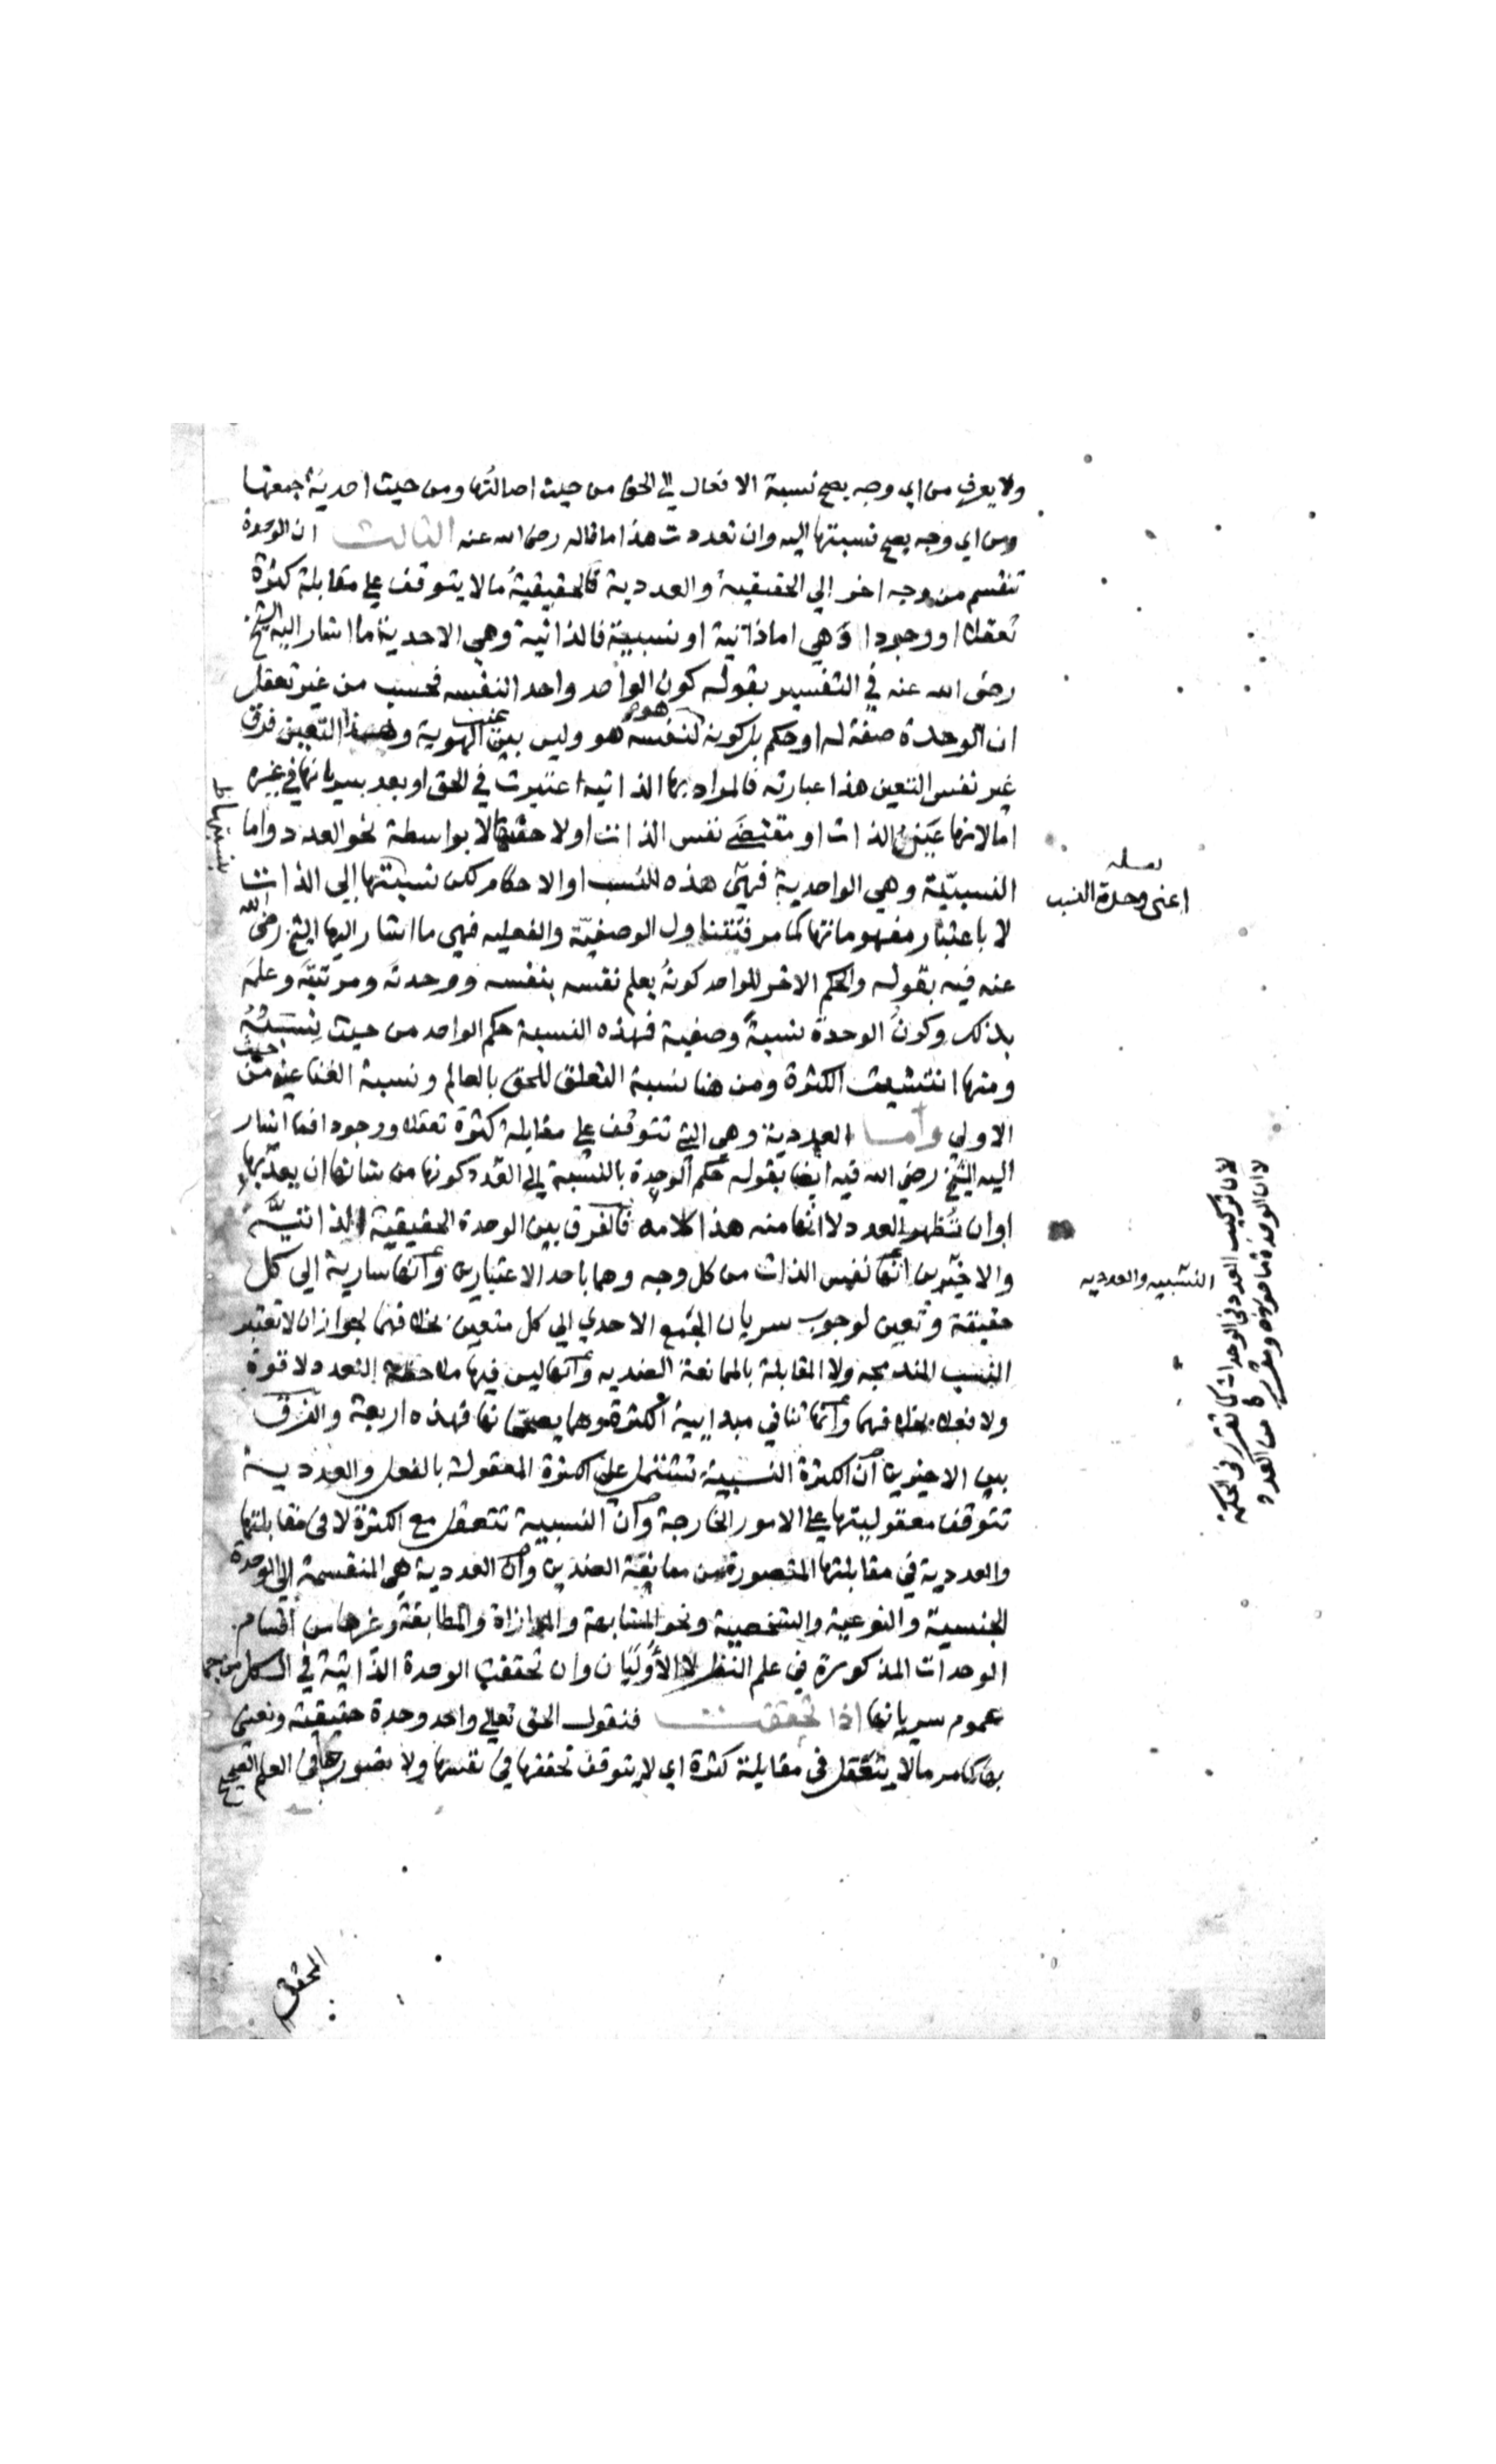 ولا يعرف من اي وجه يصح نسبة الافعال الي الحق من حيث اصالتها ومن حيث احدية جمعها
ومن اي وجه يصح نسبتها اليه وان تعددت هذا ما قاله رضى الله عنه الثالث ان الوحدة
تنقسم من وجه اخر الي الحقيقية والعددية فالحقيقية ما لا يتوقف على مقابلة كثرة
تعقلا ووجودا وهي اما ذاتية او نسبية فالذاتية وهي الاحدية ما اشار اليه الشيخ
رضى الله عنه في التفسير بقوله كون الواحد واحدا لنفسه فحسب من غير تعقل
ان الوحدة صفة له او حكم بل كونه لنفسه هو هو وليس بين غيب الهوية وهذا التعين فرق
غير نفس التعين هذا عبارته فالمراد بها الذاتية اعتبرت في الحق او بعد سريانها في غيره
اما لانها عين الذات او مقتضى نفس الذات اولا حقيقتها لا بواسطة نحو العدد واما
النسبية وهي الواحدية فهي هذه النسب او الاحكام لكن نسبتها الي الذات
لا باعتبار مفهوماتها كما مر فتتناول الوصفية والفعليه فهي ما اشار اليها الشيخ رضى الله
عنه فيه بقوله والحكم الاخر للواحد كونه يعلم نفسه بنفسه ووحدته ومرتبته وعلمه
بذلك وكون الوحدة نسبة وصفية فهذه النسبة حكم الواحد من حيث نسبته
ومنها انتشيت الكثرة ومن هنا نسبة التعلق للحق بالعالم ونسبة الغنا عنه من حيث
الاولى واما العددية وهي التي تتوقف على مقابلة كثرة تعقلا ووجودا فما اشار
اليه الشيخ رضي الله فيه ايضا بقوله حكم الوحدة بالنسبة الي العدد كونها من شانها ان يعد بها
او ان تظهر العدد لا انها منه هذا كلامه فالفرق بين الوحدة الحقيقية الذاتية
والاخيرين انها نفس الذات من كل وجه وهما باحد الاعتبارين وانها سارية الي كل
حقيقة وتعين لوجوب سريان الجمع الاحدي الي كل متعين بخلافهما لجواز ان لا تعتبر
النسب المندمجه ولا المقابلة بالممانعة الضديه وانها ليس فيها ملاحظة التعدد لا قوة
ولا فعلا بخلافهما وانها تنافي مبدايية الكثرة وهما يصححانها فهذه اربعة والفرق
بين الاخيرين ان الكثرة النسبية تشتمل على الكثرة المعقولة بالفعل والعددية
تتوقف معقوليتها على الامور الخارجة وان النسبية تتعقل مع الكثرة لا في مقابلتها
والعددية في مقابلتها المتصورة من معانقة الضدين وان العددية هي المنقسمة الى الوحدة
الجنسية والنوعية والشخصية ونحو المشابهة والموازاة والمطابقة وغيرها من اقسام
الوحدات المذكورة في علم النظر لا الاوليان وان تحققت الوحدة الذاتية في الكل من جهة
عموم سريانها اذا تحققت فنقول الحق تعالي واحد وحدة حقيقية ونعنى
بها كما مر ما لا يتعقل في مقابلة كثرة اي لا يتوقف تحققها في نفسها ولا تصورها في العلم الصحيح
المحقق
اعنى وحدة النسب
النسبيه والعدديه
لان تركيب العدد في الوحدات كما تقرر في الحكمة
لا ان الوحدة ماخوذة من العدد